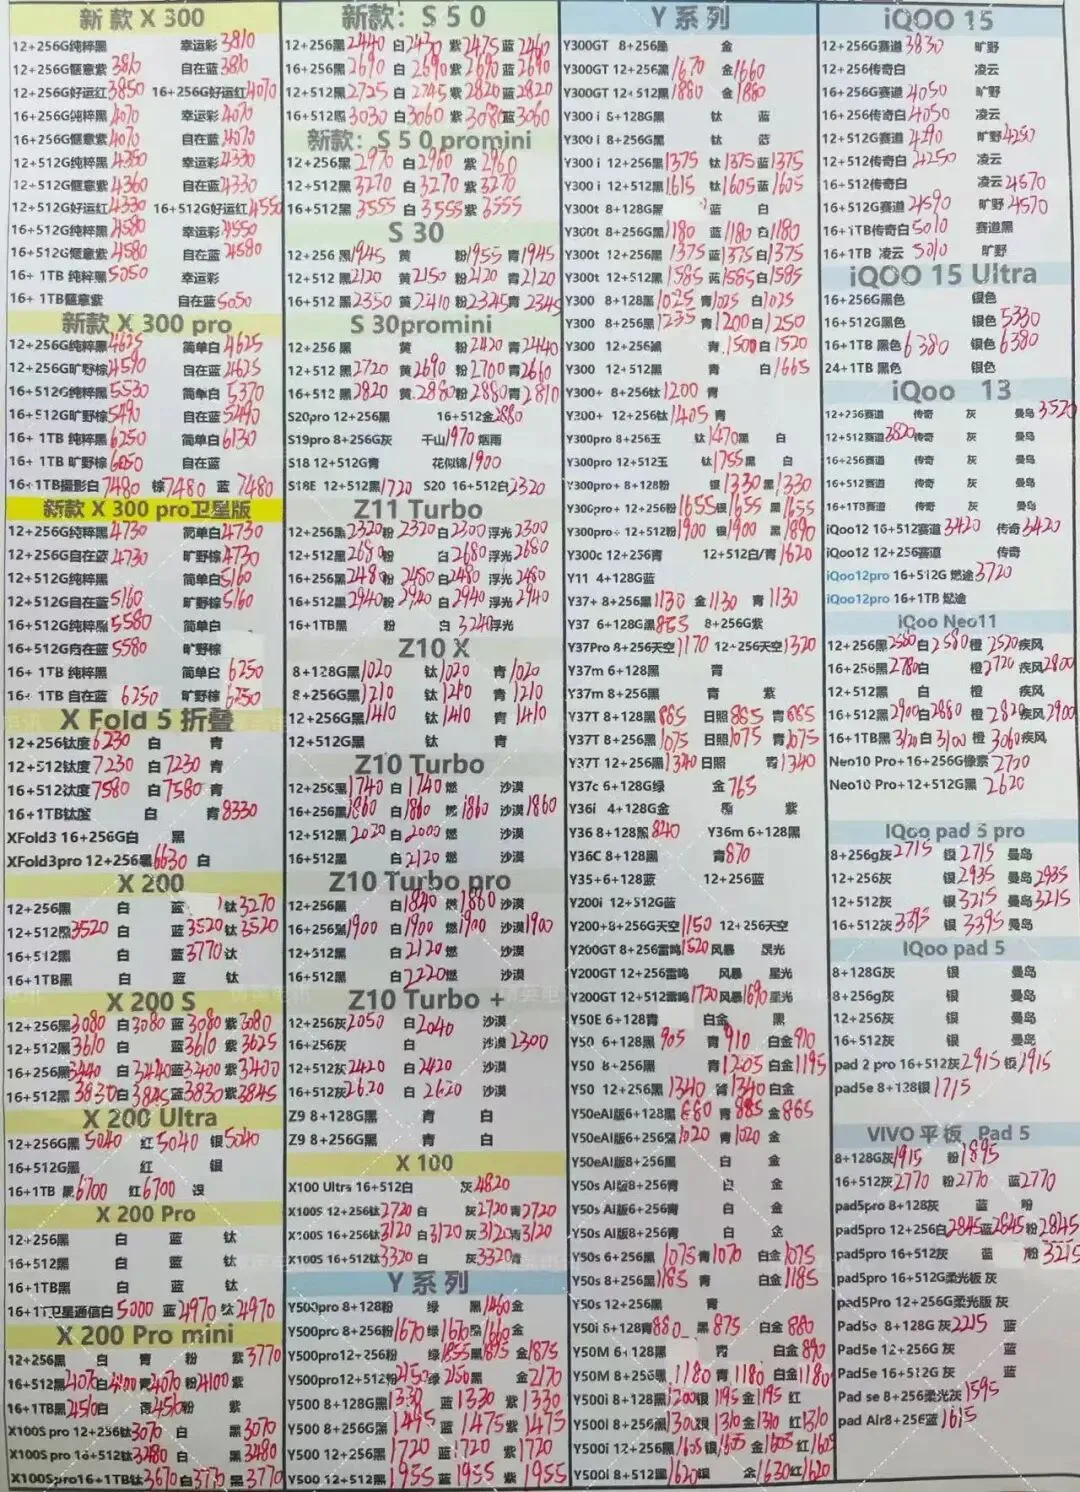 新款 X 300
12+256G纯粹黑 幸运彩 3810
12+256G惬意紫 3810 自在蓝 3810
12+256G好运红 3850 16+256G好运红 4070
16+256G纯粹黑 4070 幸运彩 4070
16+256G惬意紫 4070 自在蓝 4070
12+512G纯粹黑 4350 幸运彩 4330
12+512G惬意紫 4360 自在蓝 4330
12+512G好运红 4330 16+512G好运红 4550
16+512G纯粹黑 4580 幸运彩 4550
16+512G惬意紫 4580 自在蓝 4580
16+1TB 纯粹黑 5050 幸运彩
16+1TB惬意紫 自在蓝 5050
新款 X 300 pro
12+256G纯粹黑 4625 简单白 4625
12+256G旷野棕 4590 自在蓝 4625
16+512G纯粹黑 5530 简单白 5370
16+512G旷野棕 5490 自在蓝 5490
16+1TB 纯粹黑 6250 简单白 6130
16+1TB 旷野棕 6250 自在蓝
16+1TB摄影白 7480 棕 7480 蓝 7480
新款 X 300 pro卫星版
12+256G纯粹黑 4730 简单白 4730
12+256G自在蓝 4730 旷野棕 4730
12+512G纯粹黑 简单白 5160
12+512G自在蓝 5160 旷野棕 5160
16+512G纯粹黑 5580 简单白
16+512G自在蓝 5580 旷野棕
16+1TB 纯粹黑 简单白 6250
16+1TB 自在蓝 6250 旷野棕 6250
X Fold 5 折叠
12+256钛度 6230 白 青
12+512钛度 7230 白 7230 青
16+512钛度 7580 白 7580 青
16+1TB钛度 白 青 8330
XFold3 16+256G白 黑
XFold3pro 12+256黑 6630 白
X 200
12+256黑 白 蓝 钛 3270
12+512黑 3520 白 蓝 3520 钛 3520
16+512黑 白 蓝 3770 钛
16+1TB黑 白 蓝 钛
X 200 S
12+256黑 3080 白 3080 蓝 3080 紫 3080
12+512黑 3610 白 蓝 3610 紫 3625
16+256黑 3440 白 3440 蓝 3400 紫 3400
16+512黑 3830 白 3845 蓝 3830 紫 3845
X 200 Ultra
12+256G黑 5040 红 5040 银 5040
16+512G黑 红 银
16+1TB 黑 6700 红 6700 银
X 200 Pro
12+256黑 白 蓝 钛
16+512黑 白 蓝 钛
16+1TB黑 白 蓝 钛
16+1T卫星通信白 5000 蓝 4970 钛 4970
X 200 Pro mini
12+256黑 白 青 粉 紫 3770
16+512黑 4070 白 4100 青 4070 粉 4100 紫
16+1TB黑 4510 白 青 4510 粉 紫
X100S pro 12+256钛 3070 白 黑 3070
X100S pro 16+512钛 3480 白 黑 3480
X100Spro16+1TB钛 3670 白 3770 黑 3770
新款：S 5 0
12+256黑 2440 白 2430 紫 2475 蓝 2460
16+256黑 2690 白 2690 紫 2690 蓝 2690
12+512黑 2725 白 2745 紫 2820 蓝 2820
16+512黑 3030 白 3060 紫 3080 蓝 3060
新款：S 5 0 promini
12+256黑 2970 白 2960 紫 2960
12+512黑 3270 白 3270 紫 3270
16+512黑 3555 白 3555 紫 3555
S 30
12+256 黑 1945 黄 粉 1955 青 1945
12+512 黑 2120 黄 2150 粉 2120 青 2120
16+512 黑 2350 黄 2410 粉 2345 青 2345
S 30promini
12+256 黑 黄 粉 2420 青 2440
12+512 黑 2720 黄 2690 粉 2700 青 2660
16+512 黑 2820 黄 2880 粉 2880 青 2810
S20pro 12+256黑 16+512金 2880
S19pro 8+256G灰 千山 1970 烟雨
S18 12+512G青 花似锦 1900
S18E 12+512黑 1720 S20 16+512白 2320
Z11 Turbo
12+256黑 2320 粉 2320 白 2300 浮光 2300
12+512黑 2680 粉 白 2680 浮光 2680
16+256黑 2480 粉 2480 白 2480 浮光 2480
16+512黑 2940 粉 2940 白 2940 浮光 2940
16+1TB黑 粉 白 3240 浮光
Z10 X
8+128G黑 1020 钛 1020 青 1020
8+256G黑 1210 钛 1210 青 1210
12+256G黑 1410 钛 1410 青 1410
12+512G黑 钛 青
Z10 Turbo
12+256黑 1740 白 1740 燃 沙漠
16+256黑 1860 白 1860 燃 1860 沙漠 1860
12+512黑 2020 白 2000 燃 沙漠
16+512黑 白 2120 燃 沙漠
Z10 Turbo pro
12+256黑 白 1840 燃 1860 沙漠
16+256黑 1900 白 1900 燃 1900 沙漠 1900
12+512黑 白 2120 燃 沙漠
16+512黑 白 2220 燃 沙漠
Z10 Turbo +
12+256灰 2050 白 2040 沙漠
16+256灰 白 沙漠 2300
12+512灰 2420 白 2420 沙漠
16+512灰 2620 白 2620 沙漠
Z9 8+128G黑 青 白
Z9 8+256G黑 青 白
X 100
X100 Ultra 16+512白 灰 4820
X100S 12+256钛 2720 白 灰 2720 青 2720
X100S 16+256钛 3120 白 3120 灰 3120 青 3120
X100S 16+512钛 3320 白 灰 3320 青
Y 系列
Y500pro 8+128粉 绿 黑 1460 金
Y500pro 8+256粉 1670 绿 1670 黑 1660 金
Y500pro12+256粉 绿 1855 黑 1875 金 1875
Y500pro12+512粉 2150 绿 2150 黑 金 2170
Y500 8+128G黑 1330 蓝 1330 紫 1330
Y500 8+256G黑 1495 蓝 1475 紫 1475
Y500 12+256黑 1720 蓝 1720 紫 1720
Y500 12+512黑 1955 蓝 1955 紫 1955
Y 系列
Y300GT 8+256黑 金
Y300GT 12+256黑 1670 金 1660
Y300GT 12+512黑 1880 金 1880
Y300 i 8+128G黑 钛 蓝
Y300 i 8+256G黑 钛 蓝
Y300 i 12+256黑 1375 钛 1375 蓝 1375
Y300 i 12+512黑 1615 钛 1605 蓝 1605
Y300t 8+128G黑 蓝 白
Y300t 8+256G黑 1180 蓝 1180 白 1180
Y300t 12+256黑 1375 蓝 1375 白 1375
Y300t 12+512黑 1585 蓝 1585 白 1585
Y300 8+128黑 1025 青 1025 白 1025
Y300 8+256黑 1235 青 1200 白 1250
Y300 12+256黑 青 1500 白 1520
Y300 12+512黑 青 白 1665
Y300+ 8+256钛 1200 青
Y300+ 12+256钛 1405 青
Y300pro 8+256玉 钛 1470 黑 白
Y300pro 12+512玉 钛 1755 黑 白
Y300pro+ 8+128粉 银 1330 黑 1330
Y300pro+ 12+256粉 1655 银 1655 黑 1655
Y300pro+ 12+512粉 1900 银 1900 黑 1890
Y300c 12+256青 12+512白/青 1620
Y11 4+128G蓝
Y37+ 8+256黑 1130 金 1130 青 1130
Y37 6+128G黑 865 8+256G紫
Y37Pro 8+256天空 1170 12+256天空 1320
Y37m 6+128黑 青
Y37m 8+256黑 青 紫
Y37T 8+128黑 885 日照 885 青 885
Y37T 8+256黑 1075 日照 1075 青 1075
Y37T 12+256黑 1340 日照 青 1340
Y37c 6+128G绿 金 765
Y36i 4+128G金 黑 紫
Y36 8+128黑 840 Y36m 6+128黑
Y36C 8+128黑 青 870
Y35+ 6+128蓝 12+256蓝
Y200i 12+512G蓝
Y200+8+256G天空 1150 12+256天空
Y200GT 8+256雷鸣 1520 风暴 星光
Y200GT 12+256雷鸣 风暴 星光
Y200GT 12+512雷鸣 1720 风暴 1690 星光
Y50E 6+128青 白金 黑
Y50 6+128黑 905 青 910 白金 910
Y50 8+256黑 青 1205 白金 1195
Y50 12+256黑 1340 青 1340 白金
Y50eAI版6+128黑 880 青 885 金 865
Y50eAI版6+256黑 1020 青 1020 金
Y50eAI版8+256黑 白 金
Y50s AI版8+256青 白 金
Y50s AI版8+256青 白 金
Y50s AI版8+256青 白 金
Y50s 6+256黑 1075 青 1070 白金 1075
Y50s 8+256黑 1185 青 白金 1185
Y50s 12+256黑 青
Y50i 8+128青 880 黑 875 白金 880
Y50M 6+128黑 青 白金 890
Y50M 8+256黑 1180 青 1180 白金 1180
Y500i 8+128黑 1200 银 1195 金 1195 红
Y500i 8+256黑 1300 银 1310 金 1310 红 1310
Y500i 12+256黑 1605 银 1605 金 1605 红 1605
Y500i 8+512黑 1620 银 金 1630 红 1620
iQOO 15
12+256G赛道 3830 旷野
12+256传奇白 凌云
16+256G赛道 4050 旷野
16+256传奇白 4050 凌云
12+512G赛道 4290 旷野 4250
12+512传奇白 4250 凌云
16+512传奇白 凌云 4570
16+512G赛道 4590 旷野 4570
16+1TB传奇白 5010 赛道黑
16+1TB 凌云 5010 旷野
iQOO 15 Ultra
16+256G黑色 银色
16+512G黑色 银色 5330
16+1TB 黑色 6380 银色 6380
24+1TB 黑色 银色
iQoo 13
12+256赛道 传奇 灰 曼岛 3520
12+512赛道 3820 传奇 灰 曼岛
16+256赛道 传奇 灰 曼岛
16+512赛道 传奇 灰 曼岛
16+1TB赛道 传奇 灰 曼岛
iQoo12 16+512赛道 3420 传奇 3420
iQoo12 12+256赛道 传奇
iQoo12pro 16+512G 燃途 3720
iQoo12pro 16+1TB 燃途
iQoo Neo11
12+256黑 2580 白 2580 橙 2520 疾风
16+256黑 2780 白 橙 2720 疾风 2800
12+512黑 白 橙 疾风
16+512黑 2900 白 2880 橙 2820 疾风 2900
16+1TB黑 3120 白 3100 橙 3060 疾风
Neo10 Pro+16+256G像素 2720
Neo10 Pro+12+512G黑 2620
IQoo pad 5 pro
8+256g灰 2715 银 2715 曼岛
12+256灰 银 2935 曼岛 2935
12+512灰 银 3215 曼岛 3215
16+512灰 3395 银 3395 曼岛
IQoo pad 5
8+128G灰 银 曼岛
8+256g灰 银 曼岛
12+256灰 银 曼岛
16+512灰 银 曼岛
pad 2 pro 16+512灰 2915 银 2915
pad5e 8+128银 1715
VIVO 平板 Pad 5
8+128G灰 1915 粉 1895
16+512灰 2770 粉 2770 蓝 2770
pad5pro 8+128灰 蓝 粉
pad5pro 12+256白 2845 蓝 2845 粉 2845
pad5pro 16+512灰 蓝 粉 3215
pad5pro 16+512G柔光板 灰
pad5Pro 12+256G柔光版 灰
Pad5e 8+128G 灰 2215 蓝
Pad5e 12+256G 灰 蓝
Pad5e 16+512G 灰 蓝
Pad se 8+256柔光灰 1595
pad Air8+256蓝 1615